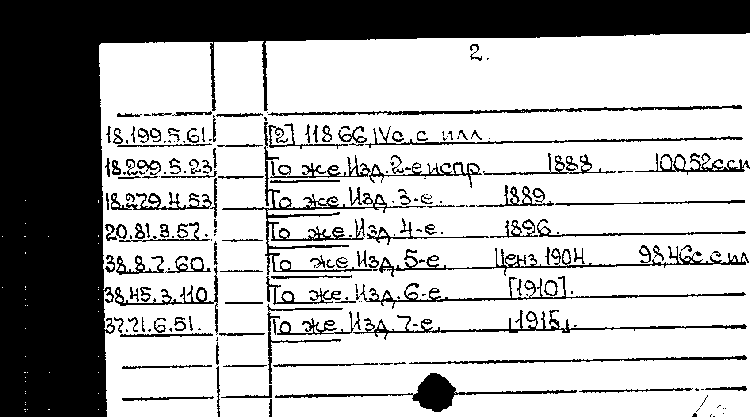 2.
18.199.5.61. [2], 118, 66, IVс. с илл.
18.299.5.23 То же. Изд. 2-е испр. 1888. 100, 52с. с и
18.279.4.53 То же. Изд. 3-е. 1889.
20.81.3.57. То же. Изд. 4-е. 1896.
38.8.7.60. То же. Изд. 5-е. Ценз. 1904. 98, 46с. с ил
38.45.3.110 То же. Изд. 6-е. [1910].
37.71.6.51. То же. Изд. 7-е. [1915].